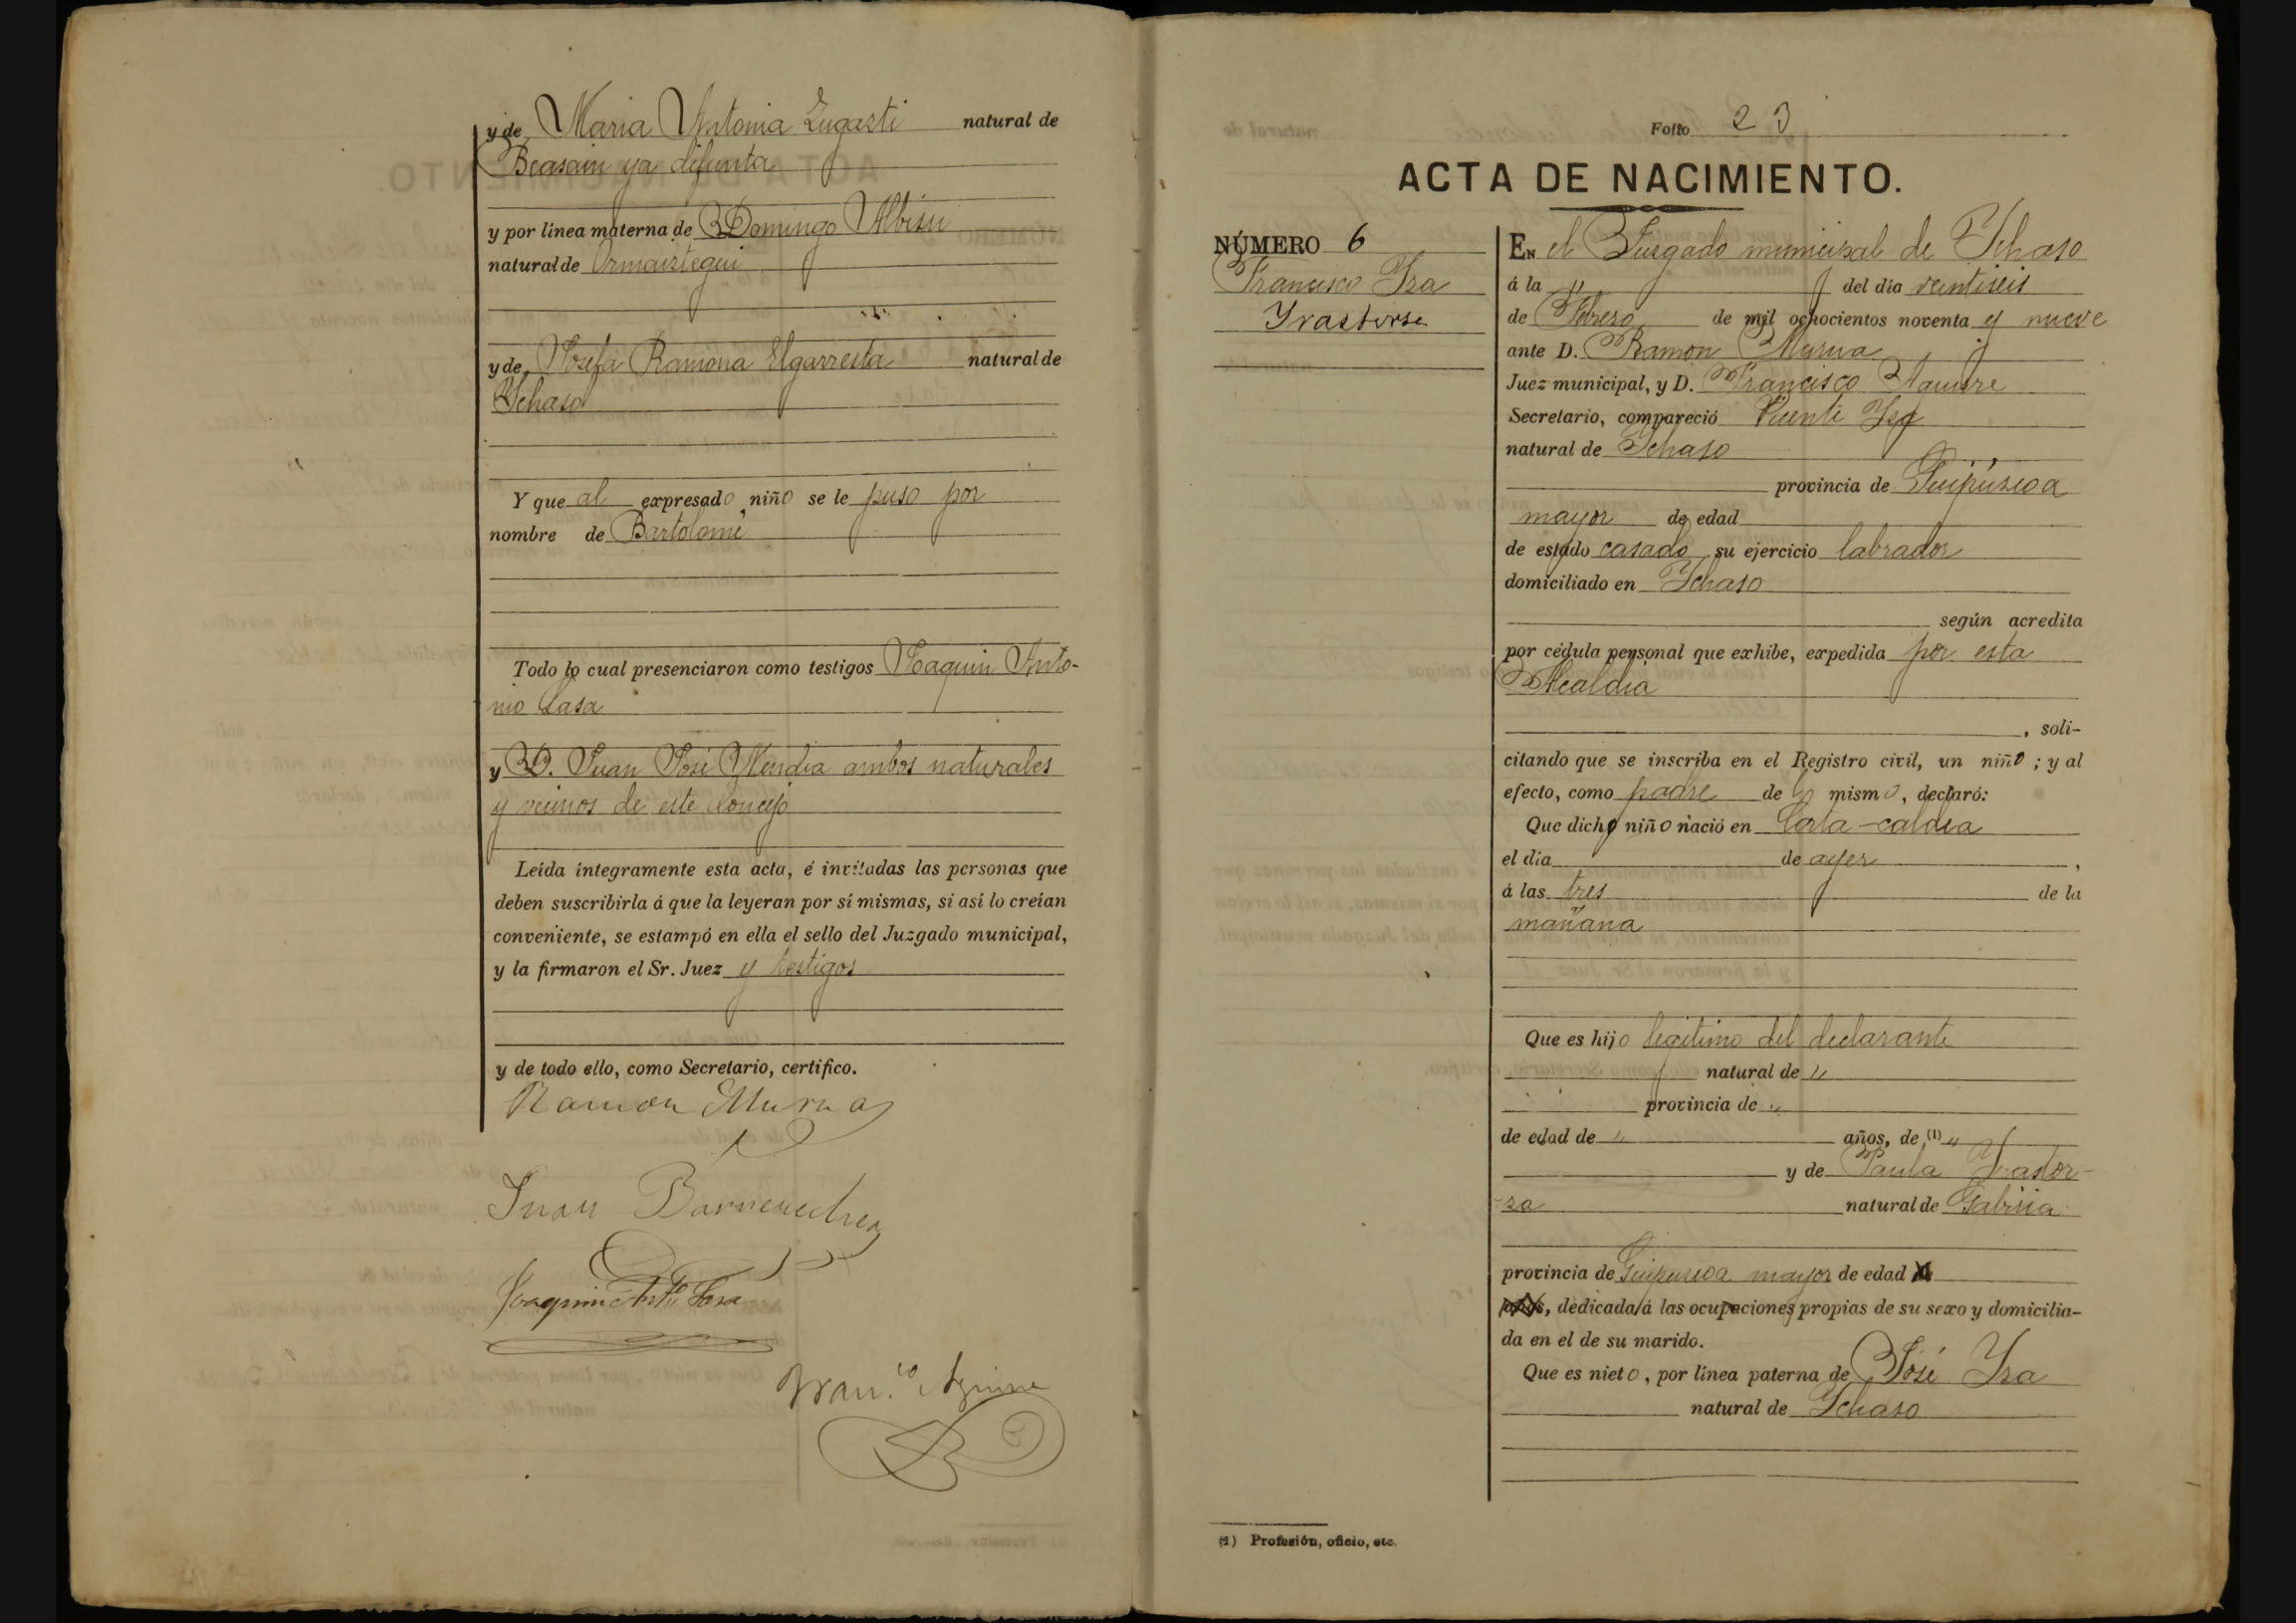 y de Maria Antonia Zugasti natural de
Beasain ya difunta
y por línea materna de Domingo Albisu
natural de Ormaiztegui
y de Josefa Ramona Elgarresta natural de
Ychaso
Y que al expresado niño se le puso por
nombre de Bartolomé
Todo lo cual presenciaron como testigos Joaquin Anto-
nio Sasa
y D. Juan José Mendia ambos naturales
y vecinos de este Concejo
Leída íntegramente esta acta, é invitadas las personas que
deben suscribirla á que la leyeran por sí mismas, si así lo creían
conveniente, se estampó en ella el sello del Juzgado municipal,
y la firmaron el Sr. Juez y testigos
y de todo ello, como Secretario, certifico.
Ramon Murua
Juan Barrenechea
Joaquin Antº Sasa
Fran.co Aguirre
Folio 23
ACTA DE NACIMIENTO.
NÚMERO 6
Francisco Isa
Yrastorse
EN el Jusgado municipal de Ychaso
á la " del dia veintiseis
de Febrero de mil ochocientos noventa y nueve
ante D. Ramon Murua
Juez municipal, y D. Francisco Aguirre
Secretario, compareció Vicente Isa
natural de Ychaso
provincia de Guipúscoa
mayor de edad
de estado casado su ejercicio labrador
domiciliado en Ychaso
según acredita
por cédula personal que exhibe, expedida por esta
Alcaldia
, soli-
citando que se inscriba en el Registro civil, un niño ; y al
efecto, como padre de lo mismo, declaró:
Que dicho niño nació en
el dia de ayer ,
á las tres de la
mañana
Que es hijo legitimo del declarante
natural de "
provincia de "
de edad de " años, de (1) "
y de Paula Yrastor-
-za natural de Gabiria
provincia de Guipuscoa mayor de edad
, dedicada á las ocupaciones propias de su sexo y domicilia-
da en el de su marido.
Que es nieto, por línea paterna de José Ysa
natural de Ychaso
(1) Profesión, oficio, etc.